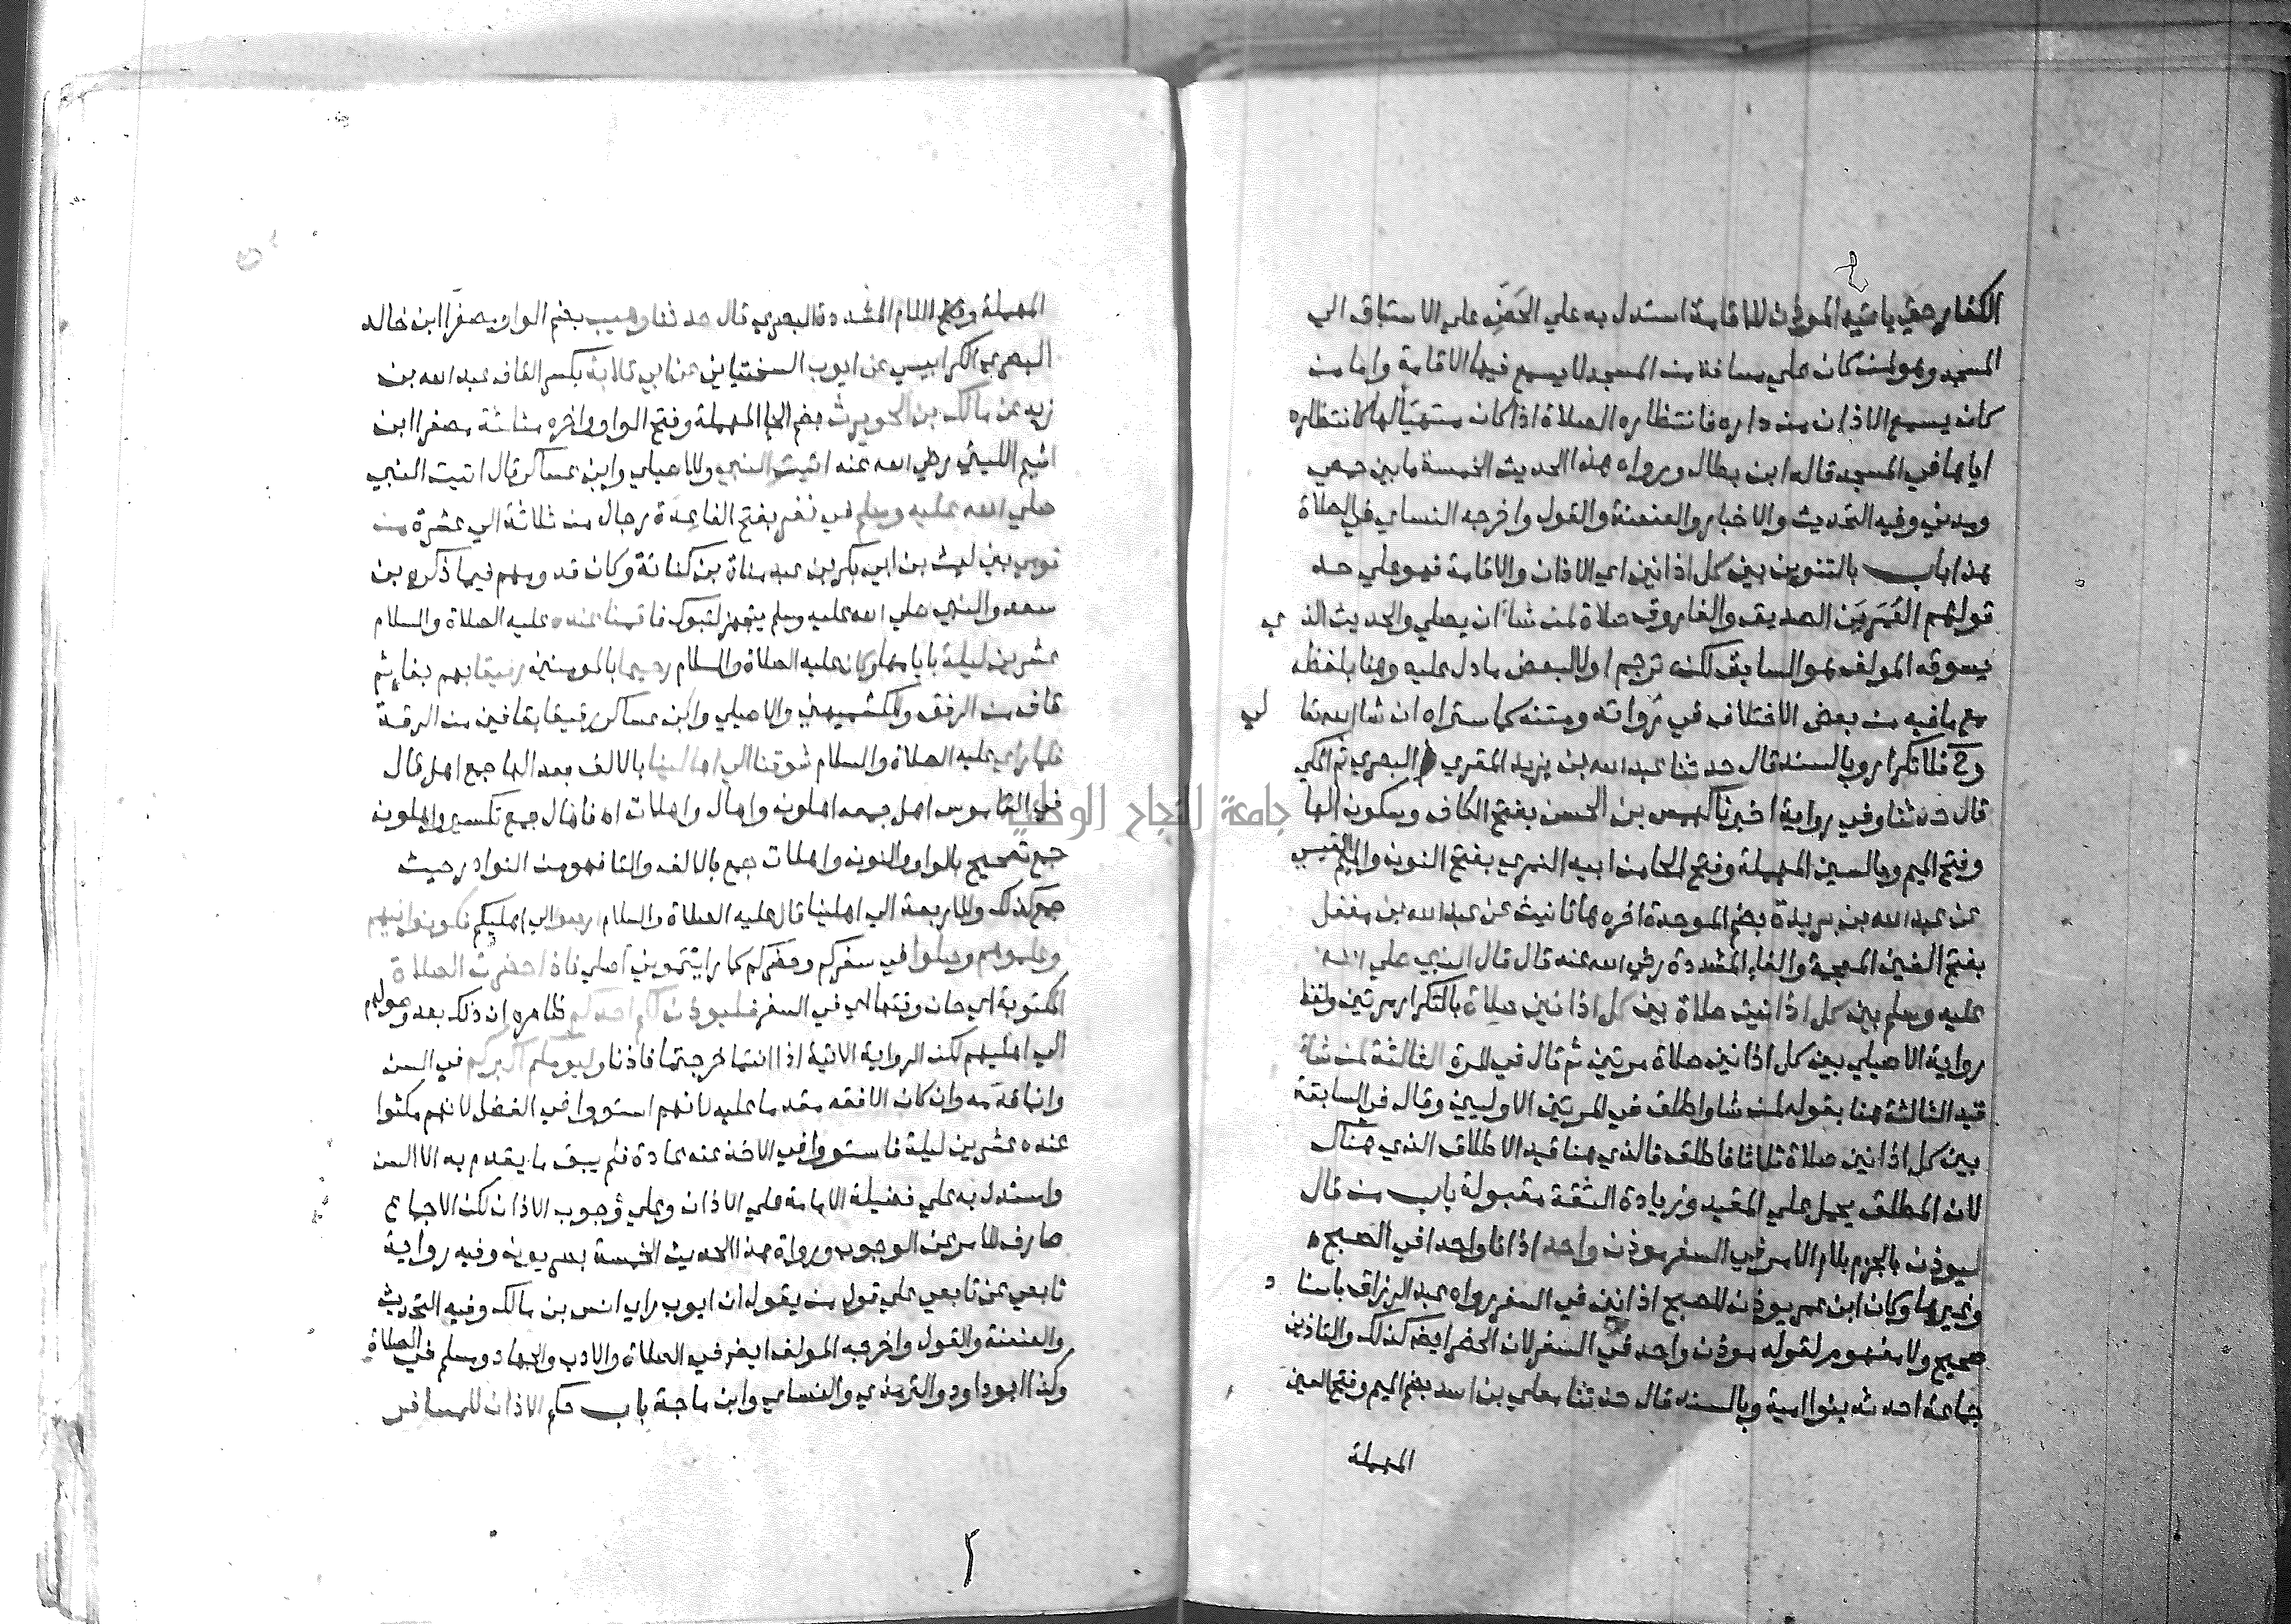 الكفار حتي ياتيه الموذن للاقامة استدل به علي الحض علي الاستباق الي
المسجد وهو لمن كان علي مسافة من المسجد لا يسمع فيها الاقامة واما من
كان يسمع الاذان من داره فانتظاره الصلاة اذا كان متهيّاً لها كانتظاره
اياها في المسجد قاله ابن بطال ورواه هذا الحديث الخمسة ما بين حمصي
ومدني وفيه التحديث والاخبار والعنعنة والقول واخرجه النساي في الصلاة
هذا باب بالتنوين بين كل اذانين اي الاذان والاقامة فهو علي حد
قولهم العُمَرين الصديق والفاروق صلاة لمن شاَ ان يصلي والحديث الذي
يسوقه المولف هو السابق لكنه ترجم اولا لبعض ما دل عليه وهنا بلفظه
مع ما فيه من بعض الاختلاف في رواته ومتنه كما ستراه ان شا الله تعالي
وح فلا تكرار وبالسند قال حدثنا عبد الله بن يزيد المقري البصري ثم المكي
قال حدثنا وفي رواية اخبرنا كهمس بن الحسن بفتح الكاف وسكون الها
وفتح الميم وبالسين المهملة وفتح الحا من ابيه النمري بفتح النون والميم القيسي
عن عبد الله بن بريدة بضم الموحدة اخره ها تانيث عن عبد الله بن مغفل
بفتح الغين المعجمة والفاء المشددة رضي الله عنه قال قال النبي صلي الله
عليه وسلم بين كل اذانين صلاة بين كل اذانين صلاة بالتكرار مرتين ولفظ
رواية الاصيلي بين كل اذانين صلاة مرتين ثم قال في المرة الثالثة لمن شاَ
قيد الثالثة هنا بقوله لمن شا واطلق في المرتين الاوليين وقال في السابقة
بين كل اذانين صلاة ثلاثا فاطلق فالذي هنا قيد الاطلاق الذي هناك
لان المطلق يحمل علي المقيد وزيادة الثقة مقبولة باب من قال
ليوذن بالجزم بلام الامر في السفر موذن واحد اذانا واحدا في الصبح
وغيرها وكان ابن عمر يوذن للصبح اذانين في السفر رواه عبد الرزاق باسناد
صحيح ولا مفهوم لقوله موذن واحد في السفر لان الحضر ايضا كذلك والتاذين
جماعة احدثه بنوا امية وبالسند قال حدثنا معلي بن اسد بضم الميم وفتح العين
المهملة
المهملة وفتح اللام المشددة البصري قال حدثنا وهيب بضم الواو مصغرا ابن خالد
البصري الكرابيسي عن ايوب السختياني عن ابي قلابة بكسر القاف عبد الله بن
زيد عن مالك بن الحويرث بضم الحا المهملة وفتح الواو واخره مثلثة مصغرا ابن
اشيم الليثي رضي الله عنه اتيت النبي وللاصيلي وابن عساكر قال اتيت النبي
صلي الله عليه وسلم في نفر بفتح الفا عدة رجال من ثلاثة الي عشرة من
قومي بني ليث بن ابي بكر بن عبد مناة بن كنانة وكان قدومهم فيما ذكره بن
سعد والنبي صلي الله عليه وسلم يتجهز لتبوك فاقمنا عنده عليه الصلاة والسلام
عشرين ليلة بايامها وكان عليه الصلاة والسلام رحيما بالمومنين رفيقا بهم بفاء ثم
قاف من الرفق وللكشميهني والاصيلي وابن عساكر رقيقا بقافين من الرقة
فلما راي عليه الصلاة والسلام شوقنا الي اهالينا بالالف بعد الها جمع اهل قال
في القاموس اهل جمعه اهلون واهال واهلات اه فاهال جمع تكسير واهلون
جمع تصحيح بالواو والنون واهلات جمع بالالف والتا فهو من النوادر حيث
جمع كذلك وللاربعة الي اهلينا قال عليه الصلاة والسلام ارجعوا الي اهليكم فكونوا فيهم
وعلموهم وصلوا في سفركم وحضركم كما رايتموني اصلي فاذا حضرت الصلاة
المكتوبة اي حان وقتها اي في السفر فليوذن لكم احدكم ظاهره ان ذلك بعد وصولهم
الي اهليهم لكن الرواية الاتية اذا انتما خرجتما فاذنا وليومكم اكبركم في السن
وانما قدّمه وان كان الافقه مقدما عليه لانهم استووا في الفضل لانهم مكثوا
عنده عشرين ليلة فاستووا في الاخذ عنه عادة فلم يبق ما يقدم به الا السن
واستدل به علي فضيلة الامامة علي الاذان وعلي وجوب الاذان لكن الاجماع
صارف للامر عن الوجوب ورواة هذا الحديث الخمسة بصريون وفيه رواية
تابعي عن تابعي علي قول من يقول ان ايوب راي انس بن مالك وفيه التحديث
والعنعنة والقول واخرجه المولف ايضا في الصلاة والادب والجهاد ومسلم في الصلاة
وكذا ابو داود والترمذي والنساي وابن ماجة باب حكم الاذان للمسافر
جامعة النجاح الوطنية